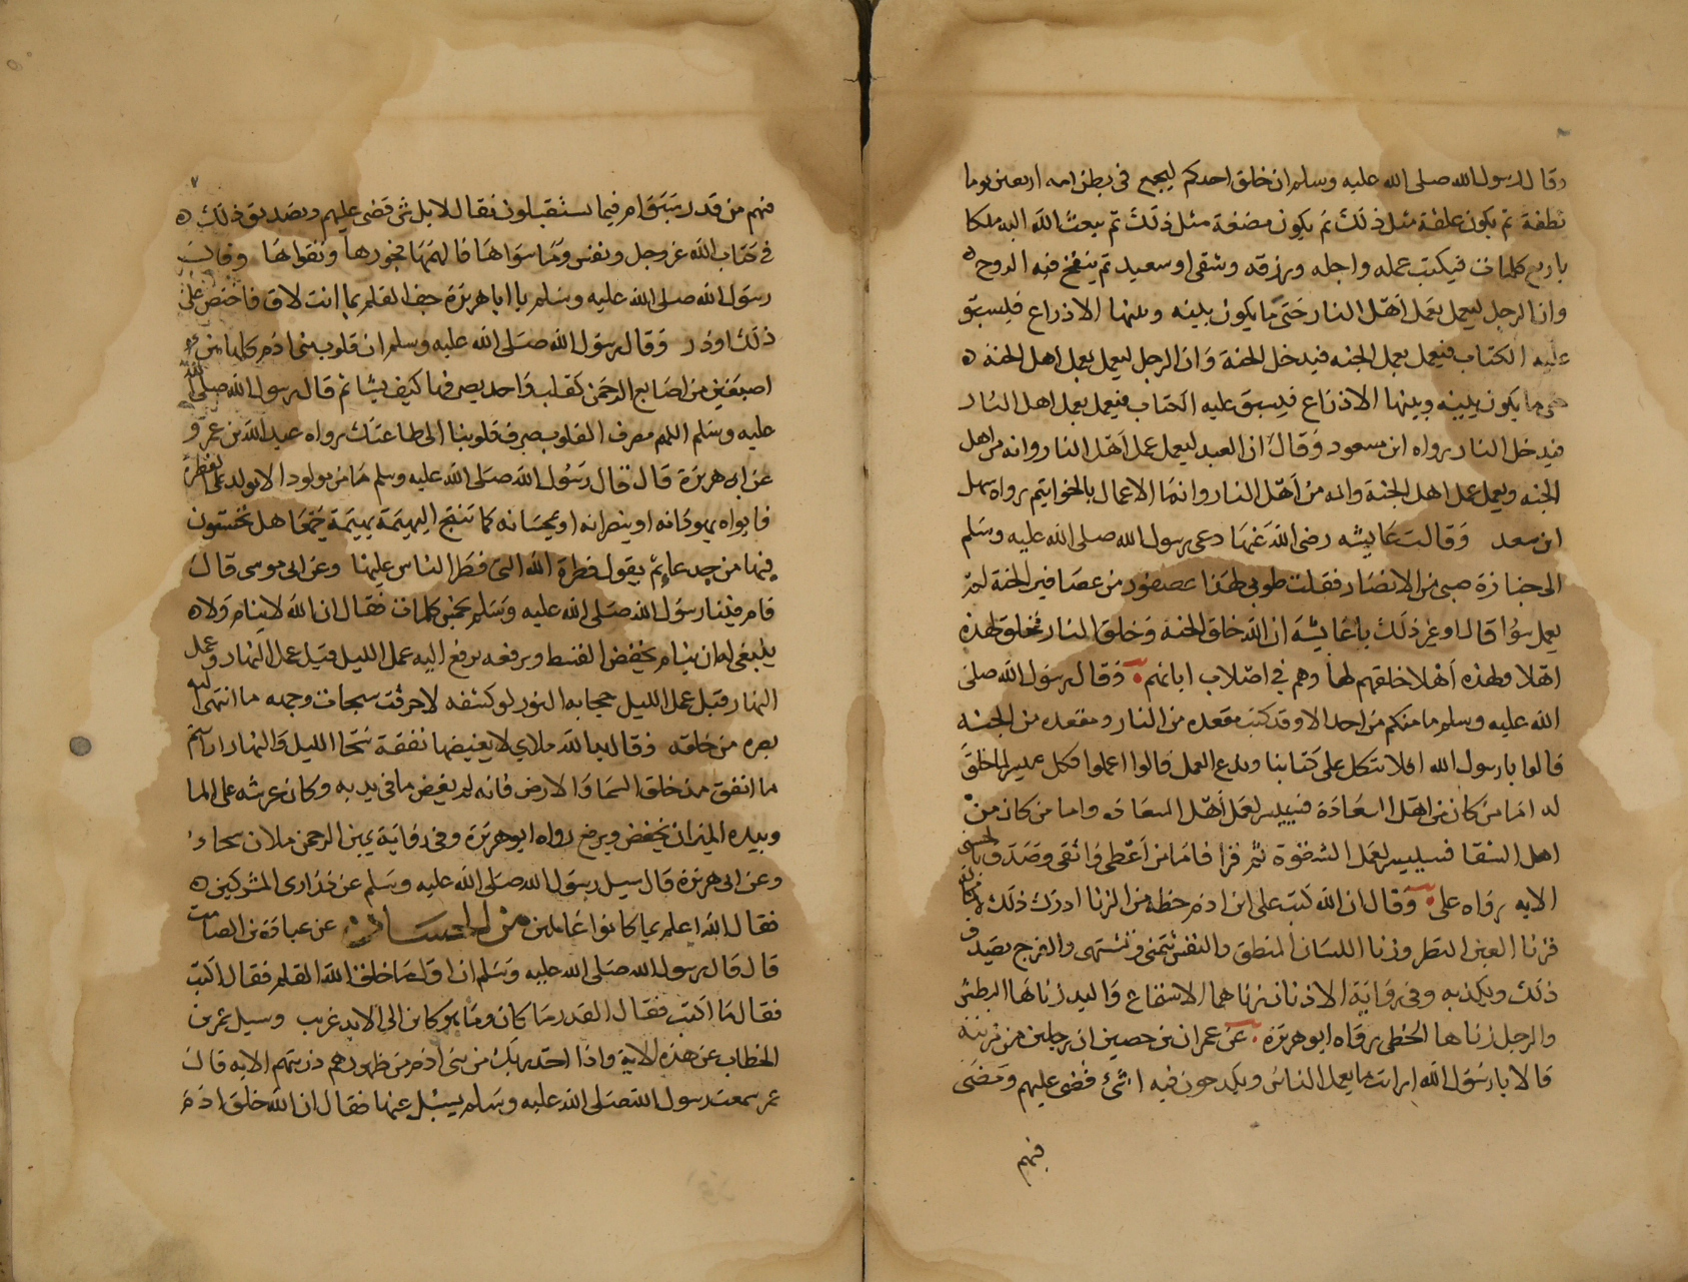 وقال رسول الله صلى الله عليه وسلم ان خلق احدكم ليجمع في بطن امه اربعين يوما
نطفة ثم يكون علقة مثل ذلك ثم يكون مضغة مثل ذلك ثم يبعث الله اليه ملكا
باربع كلمات فيكتب عمله واجله ورزقه وشقي او سعيد ثم ينفخ فيه الروح
وان الرجل ليعمل بعمل اهل النار حتى ما يكون بينه وبينها الا ذراع فيسبق
عليه الكتاب فيعمل بعمل الجنه فيدخل الجنة وان الرجل ليعمل بعمل اهل الجنة
حتى ما يكون بينه وبينها الا ذراع فيسبق عليه الكتاب فيعمل بعمل اهل النار
فيدخل النار رواه ابن مسعود وقال ان العبد ليعمل عمل اهل النار وانه من اهل
الجنه ويعمل عمل اهل الجنة وانه من اهل النار وانما الاعمال بالخواتيم رواه سهل
ابن سعد وقالت عايشه رضى الله عنها دعى رسول الله صلى الله عليه وسلم
الى جنازة صبي من الانصار فقلت طوبى لهذا عصفور من عصافير الجنة لم
يعمل سوا قال او غير ذلك يا عايشة ان الله خلق الجنة وخلق النار فخلق لهذه
اهلا ولهذه اهلا خلقهم لها وهم في اصلاب ابائهم وقال رسول الله صلى
الله عليه وسلم ما منكم من احد الا وقد كتب مقعده من النار ومقعده من الجنه
قالوا يا رسول الله افلا نتكل على كتابنا وندع العمل قالوا اعملوا فكل ميسر لما خلق
له اما من كان من اهل السعادة فييسر لعمل اهل السعاده واما من كان من
اهل الشقا فسييسر لعمل الشقوة ثم قرا فاما من اعطى واتقى وصدق بالحسنى
الايه رواه على وقال ان الله كتب على ابن ادم حظه من الزنا ادرك ذلك لا محالة
فزنا العين النظر وزنا اللسان المنطق والنفس تتمنى وتشتهى والفرج يصدق
ذلك ويكذبه وفي رواية الاذنان زناهما الاستماع واليد زناها البطش
والرجل زناها الخطى رواه ابو هريرة عن عمران بن حصين ان رجلين من مزينه
قالا يا رسول الله ارايت ما يعمل الناس ويكدحون فيه اشئ قضى عليهم ومضى
فيهم
فيهم من قدر سبق ام فيما يستقبلون فقال لا بل شئ قضى عليهم وتصديق ذلك
في كتاب الله عز وجل ونفس وما سواها فالهمها فجورها وتقواها وقال
رسول الله صلى الله عليه وسلم يا ابا هريرة جف القلم بما انت لاق فاختص على
ذلك او ذر وقال رسول الله صلى الله عليه وسلم ان قلوب بنى ادم كلها بين
اصبعين من اصابع الرحمن كقلب واحد يصرفها كيف يشا ثم قال رسول الله صلى الله
عليه وسلم اللهم مصرف القلوب صرف قلوبنا الى طاعتك رواه عبد الله بن عمرو
عن ابى هريرة قال قال رسول الله صلى الله عليه وسلم ما من مولود الا يولد على الفطرة
فابواه يهودانه او ينصرانه او يمجسانه كما تنتج البهيمة بهيمة جمعا هل تحسون
فيها من جدعا ثم يقول فطرة الله التى فطر الناس عليها وعن ابى موسى قال
قام فينا رسول الله صلى الله عليه وسلم بخمس كلمات فقال ان الله لا ينام ولا
ينبغى له ان ينام يخفض القسط ويرفعه يرفع اليه عمل الليل قبل عمل النهار وعمل
النهار قبل عمل الليل حجابه النور لو كشفه لاحرقت سبحات وجهه ما انتهى اليه
بصره من خلقه وقال يد الله ملاي لا يغيضها نفقة سحا الليل والنهار ارايتم
ما انفق مذ خلق السما والارض فانه لم يغيض ما في يديه وكان عرشه على الما
وبيده الميزان يخفض ويرفع رواه ابو هريرة وفي رواية يمين الرحمن ملان سحاء
وعن ابى هريرة قال سيل رسول الله صلى الله عليه وسلم عن ذرارى المشركين
فقال الله اعلم بما كانوا عاملين من الحسان عن عبادة بن الصامت
قال قال رسول الله صلى الله عليه وسلم ان اول ما خلق الله القلم فقال اكتب
فقال ما اكتب فقال القدر ما كان وما هو كاين الى الابد غريب وسيل عمر بن
الخطاب عن هذه الاية واذا اخذ ربك من بنى ادم من ظهورهم ذريتهم الايه قال
عمر سمعت رسول الله صلى الله عليه وسلم يسئل عنها فقال ان الله خلق ادم